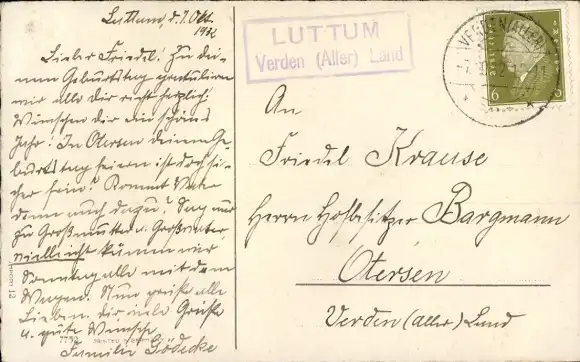 Luttum, d. 7. Okt.
1932
Lieber Friedel! Zu dei-
nem Geburtstag gratulieren
wir alle dir recht herzlich!
Wünschen dir ein schönes
Jahr! In Otersen deinen Ge-
burtstag feiern ist doch si-
cher fein? Kommt Vater
denn auch dazu? Sag mal
zu Großmutter u. Großvater
vielleicht kämen wir
Sonntag alle mit dem
Wagen. Nun grüße alle
Lieben. dir viele Grüße
u. gute Wünsche
Familie Gödecke
LUTTUM
Verden (Aller) Land
VERDEN (ALLER)
6
An
Friedel Krause
Herrn Hofbesitzer Bargmann
Otersen
Verden (Aller) Land